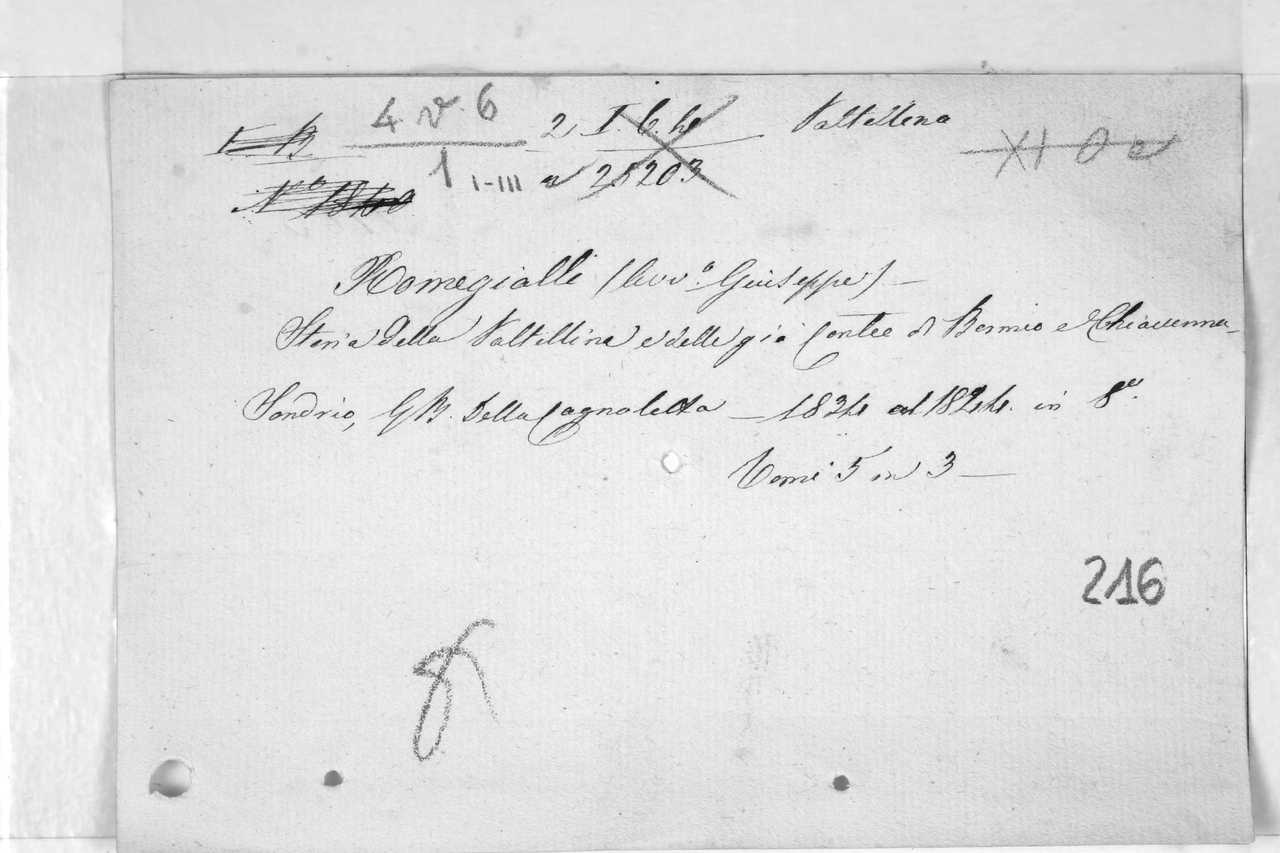 4 v. 6 2 I. 6. Valtellina XI
1 I-III a 25203
Romegialli (Avvº. Giuseppe) –
Storia della Valtellina e delle già Contee di Bormio e Chiavenna –
Sondrio, G B. Della Cagnoletta – 1834 al in 8º.
Tomi 5 in 3 –
216